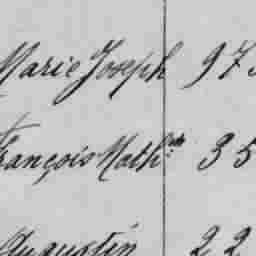 Marie Joseph 973
François Math.de 35
Augustin 22